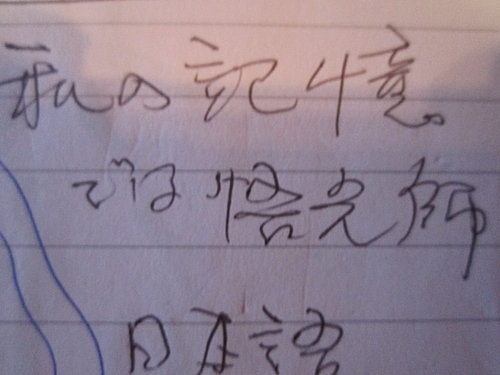 私の記憶
では悟光師
日本語